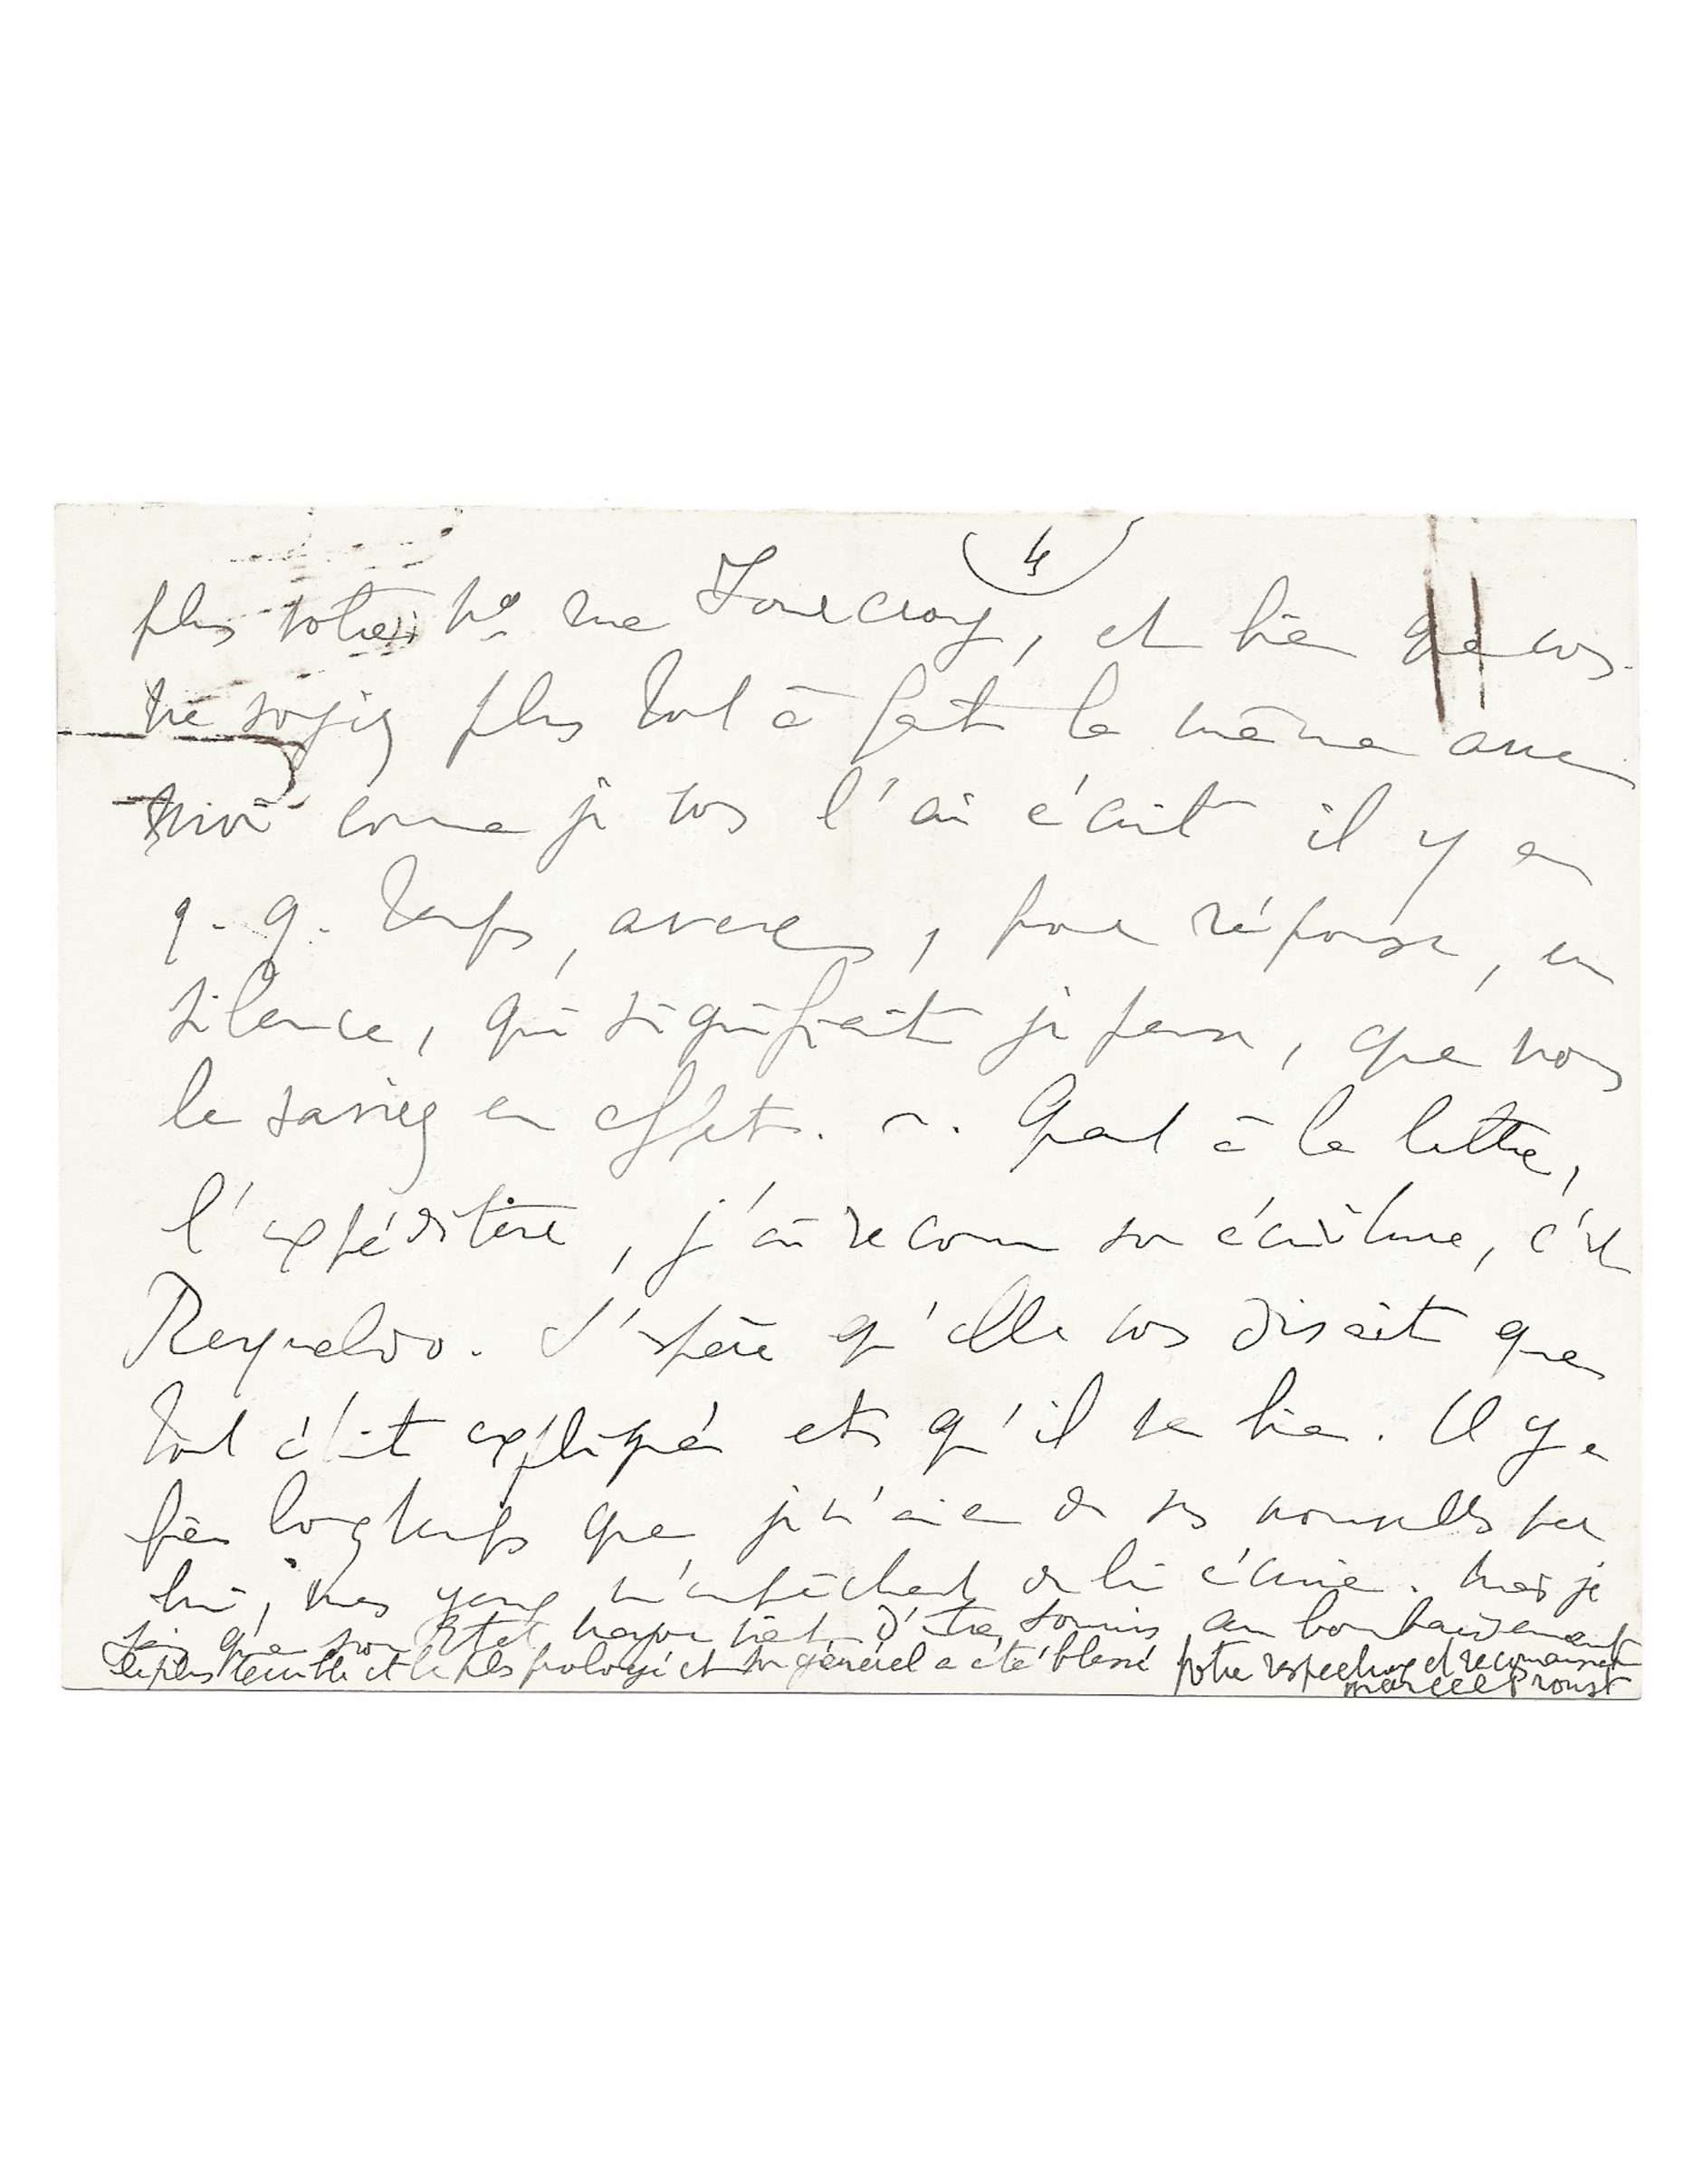 4
plus votre no rue Fourcroy, et bien que vous
ne soyiez plus tout à fait la même avec
moi comme je vous l'ai écrit il y a
q.q. temps, avec, pour réponse, un
silence, qui signifiait je pense, que vous
le saviez en effet. ~. Quant à la lettre,
l'expéditeur, j'ai reconnu son écriture, c'est
Reynaldo. J'espère qu'elle vous disait que
tout était expliqué et qu'il va bien. Il y a
bien longtemps que je n'ai eu de ses nouvelles par
lui, mes yeux m'empêchant de lui écrire. Mais je
sais que son Etat major vient d'être soumis au bombardement
le plus terrible et le plus prolongé et son général a été blessé Votre respectueux et reconnaissant
Marcel Proust